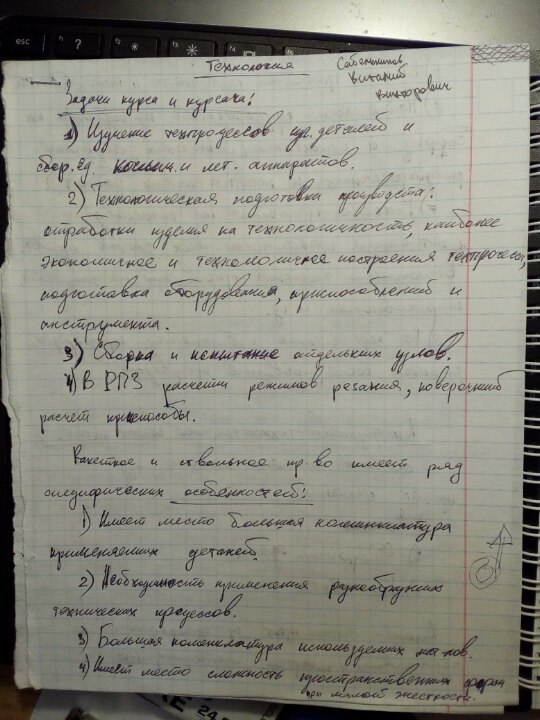 Технология
Виталий
Викторович
Задачи курса и курсача!
1) Изучение техпроцессов пр. деталей и
сбор. ед. и лет. аппаратов.
2) Технологическая подготовка произвдста:
отработки изделия на технологичность, наиболее
экономичное и технологичное построения техпроцесса,
подготовка оборудования, приспособлений и
инструмента.
3) Сборка и испытание отдельных узлов.
4) В РПЗ расчеты режимов резания, поверочный
расчет приспособы.
Ракетное и ствольное пр-во имеет ряд
специфических особенностей:
1) Имеет место большая номенклатура
применяемых деталей.
2) Необходимость применения разнообразных
технических процессов.
3) Большая номенклатура используемых мат-лов.
4) Имеет место сложность пространственных форм
при малой жесткости.
esc